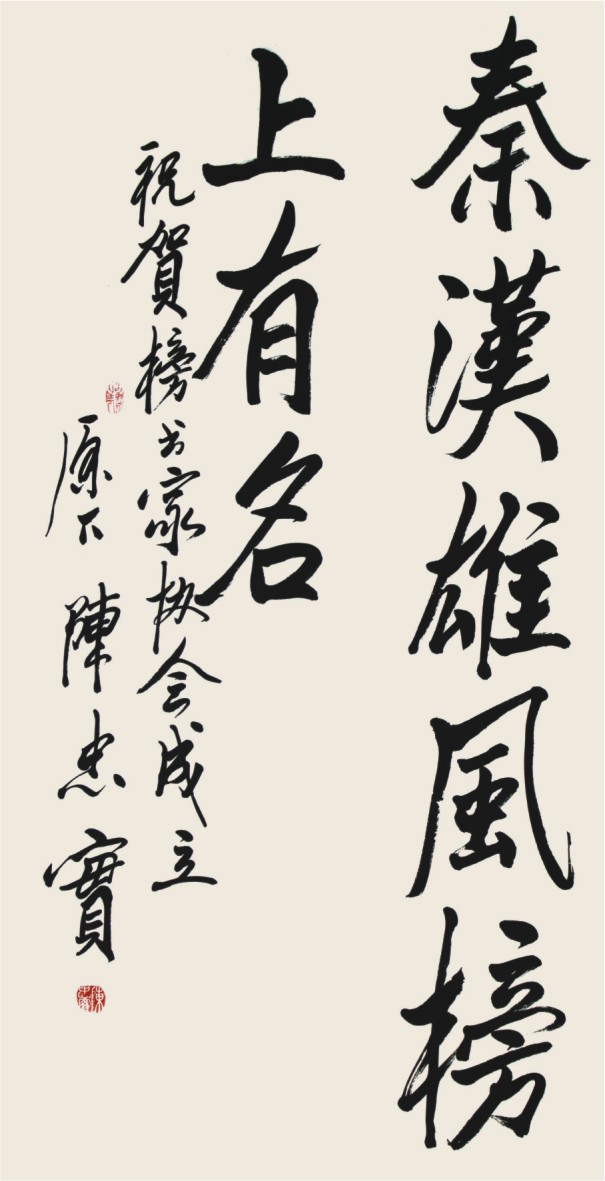 秦漢雄風榜
上有名
祝賀榜书家协会成立
原下 陳忠實